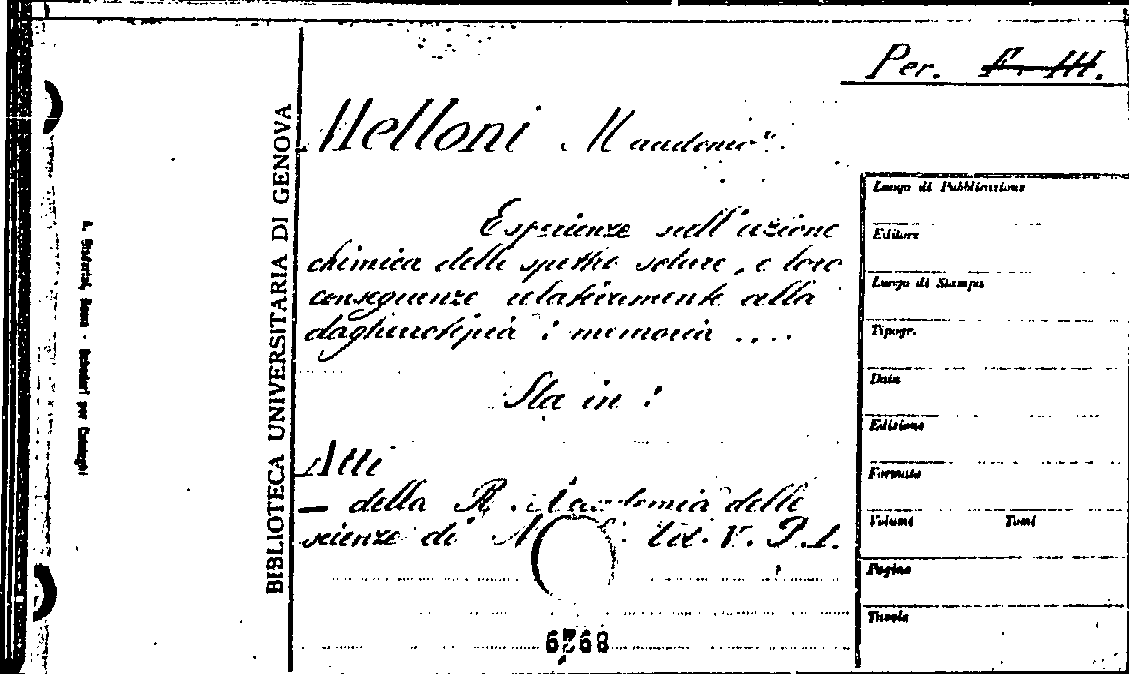 Per. F. III.
Melloni Macedonio
Esperienze sull'azione
chimica dello spettro solare, e loro
conseguenze relativamente alla
daguerrotipia : memoria ....
Sta in :
Atti
— della R. Accademia delle
scienze di Vol. V. P. 1.
6768
BIBLIOTECA UNIVERSITARIA DI GENOVA
Luogo di Pubblicazione
Editore
Luogo di Stampa
Tipogr.
Data
Edizione
Formato
Volumi Tomi
Pagine
Tavole
Roma - Schedari per Cataloghi